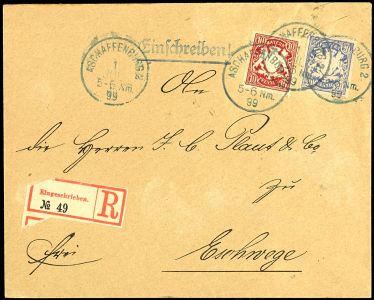 Einschreiben!
ASCHAFFENBURG 2
1
5-6 Nm.
99
ASCHAFFENBURG 2
5-6 Nm.
99
BURG 2
An
die Herren J. C. Plaut & Co.
zu
Eingeschrieben.
№ 49
R
frei
Eschwege